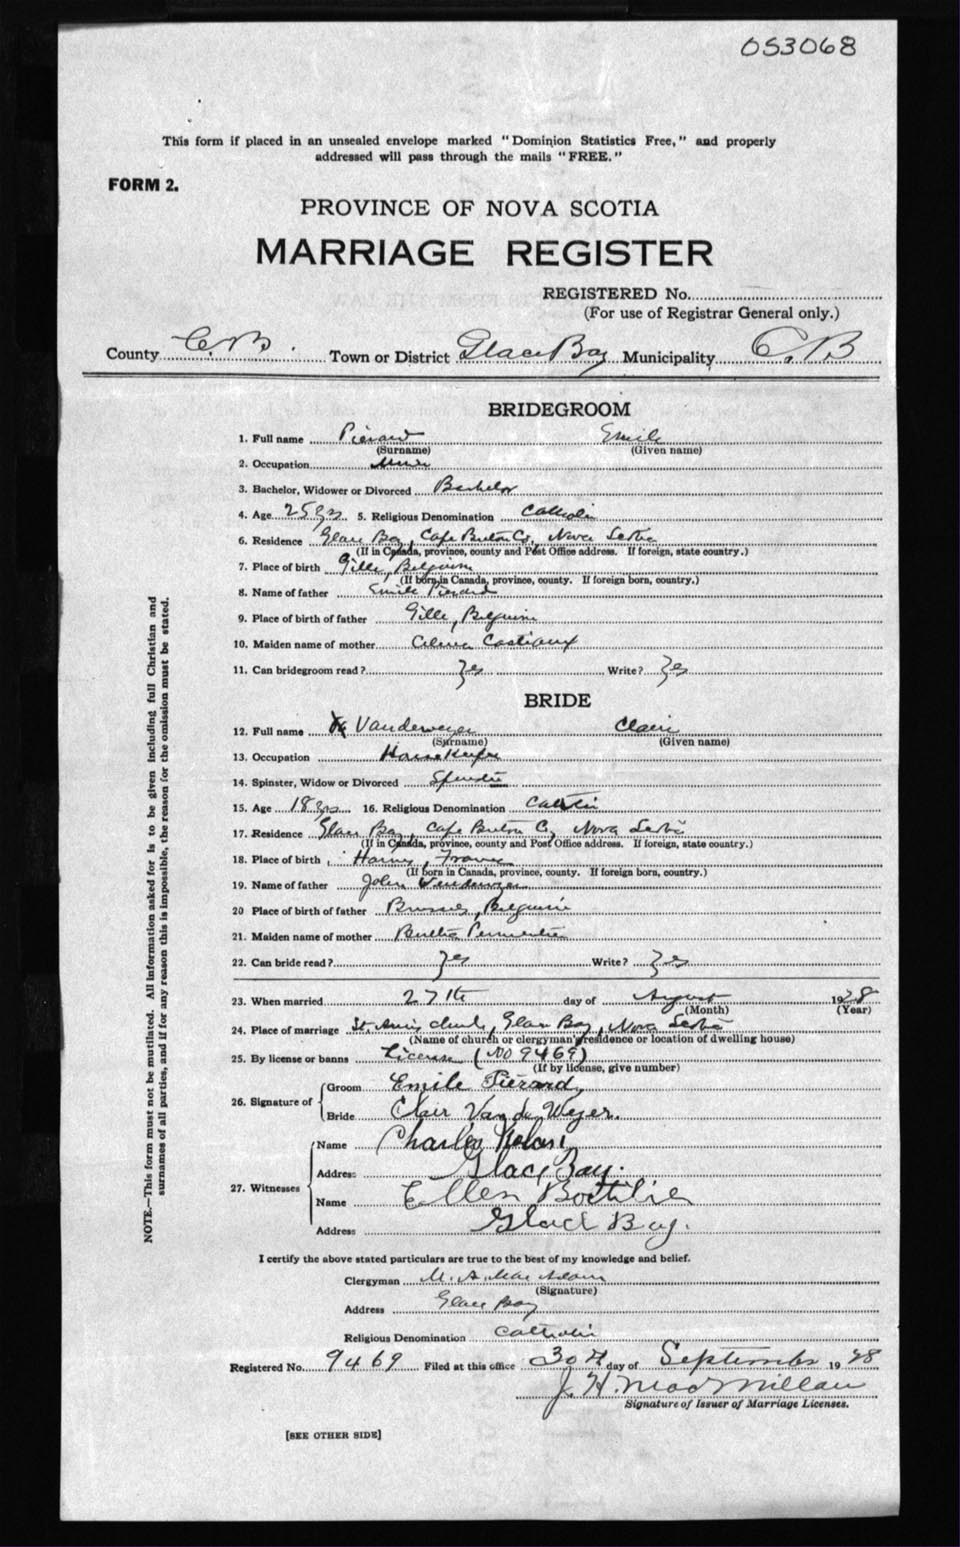 053068
This form if placed in an unsealed envelope marked "Dominion Statistics Free," and properly
addressed will pass through the mails "FREE."
FORM 2.
PROVINCE OF NOVA SCOTIA
MARRIAGE REGISTER
REGISTERED No.
(For use of Registrar General only.)
County C. B. Town or District Glace Bay Municipality C. B
BRIDEGROOM
1. Full name Pierard Emile
(Surname) (Given name)
2. Occupation
3. Bachelor, Widower or Divorced Bachelor
4. Age 25 yrs 5. Religious Denomination Catholic
6. Residence Glace Bay, Cape Breton Co, Nova Scotia
(If in Canada, province, county and Post Office address. If foreign, state country.)
7. Place of birth Gille, Belguim
(If born in Canada, province, county. If foreign born, country.)
8. Name of father Emile Pierard
9. Place of birth of father Gille, Belguim
10. Maiden name of mother Castiaux
11. Can bridegroom read? Yes Write? Yes
BRIDE
12. Full name Vandeweyer Clair
(Surname) (Given name)
13. Occupation House Keeper
14. Spinster, Widow or Divorced Spinster
15. Age 18 yrs 16. Religious Denomination Catholic
17. Residence Glace Bay, Cape Breton Co, Nova Scotia
(If in Canada, province, county and Post Office address. If foreign, state country.)
18. Place of birth France
(If born in Canada, province, county. If foreign born, country.)
19. Name of father John Vandeweyer
20 Place of birth of father Brussels, Belguim
21. Maiden name of mother
22. Can bride read? Yes Write? Yes
23. When married 27th day of August 1928
(Month) (Year)
24. Place of marriage St. Anns church, Glace Bay, Nova Scotia
(Name of church or clergyman's residence or location of dwelling house)
25. By license or banns License (No 9469)
(If by license, give number)
26. Signature of Groom Emile Pierard
Bride Clair Van de Weyer.
27. Witnesses Name Charles Nolan
Address Glace Bay.
Name Ellen Boutilier
Address Glace Bay.
I certify the above stated particulars are true to the best of my knowledge and belief.
Clergyman M. A. Mac Adam
(Signature)
Address Glace Bay
Religious Denomination Catholic
Registered No. 9469 Filed at this office 30th day of September 1928
J. H. MacMillan
Signature of Issuer of Marriage Licenses.
[SEE OTHER SIDE]
NOTE.—This form must not be mutilated. All information asked for is to be given including full Christian and
surnames of all parties, and if for any reason this is impossible, the reason for the omission must be stated.